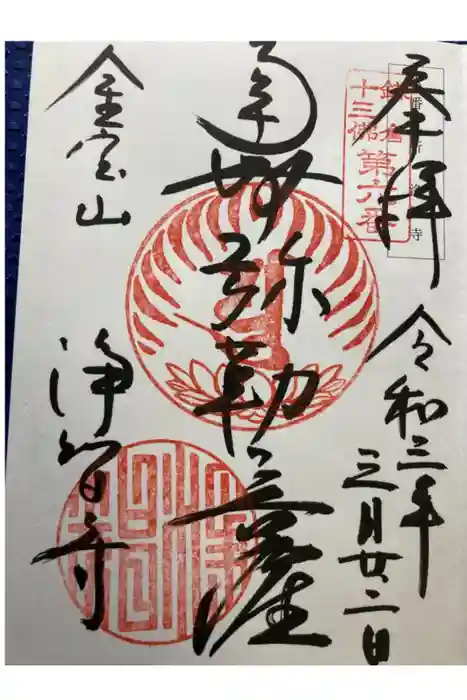 奉拝
鎌倉
十三佛
第六番
令和三年
三月廿二日
南無弥勒菩薩
金宝山
浄智寺